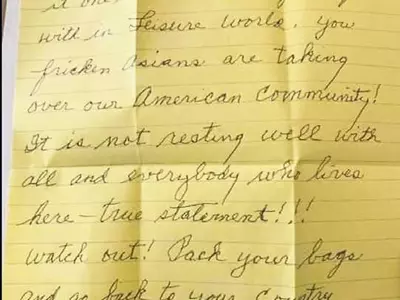 it one
with in Leisure World. You
fricken Asians are taking
over our American Community!
It is not resting well with
all and everybody who lives
here - true statement!!!
watch out! Pack your bags
and go back to your country